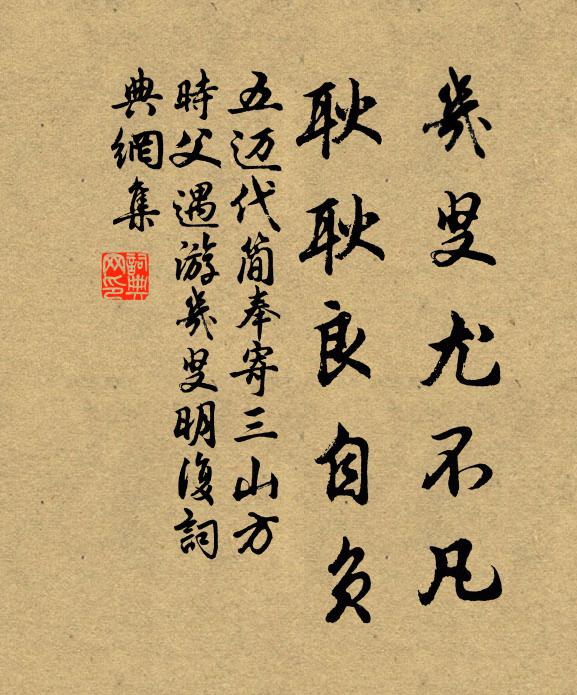 幾叟尤不凡
耿耿良自負
五迈代简奉寄三山方
時父遇游幾叟明復詞
典網集
詞典網印